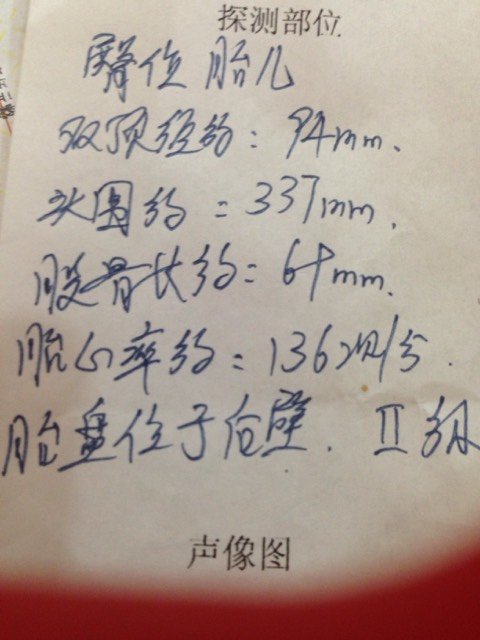 探测部位
臀位 胎儿
双顶径约：94mm.
头围约：337mm.
股骨长约：69mm.
胎心率约：136次/分.
胎盘位于后壁. II级
声像图